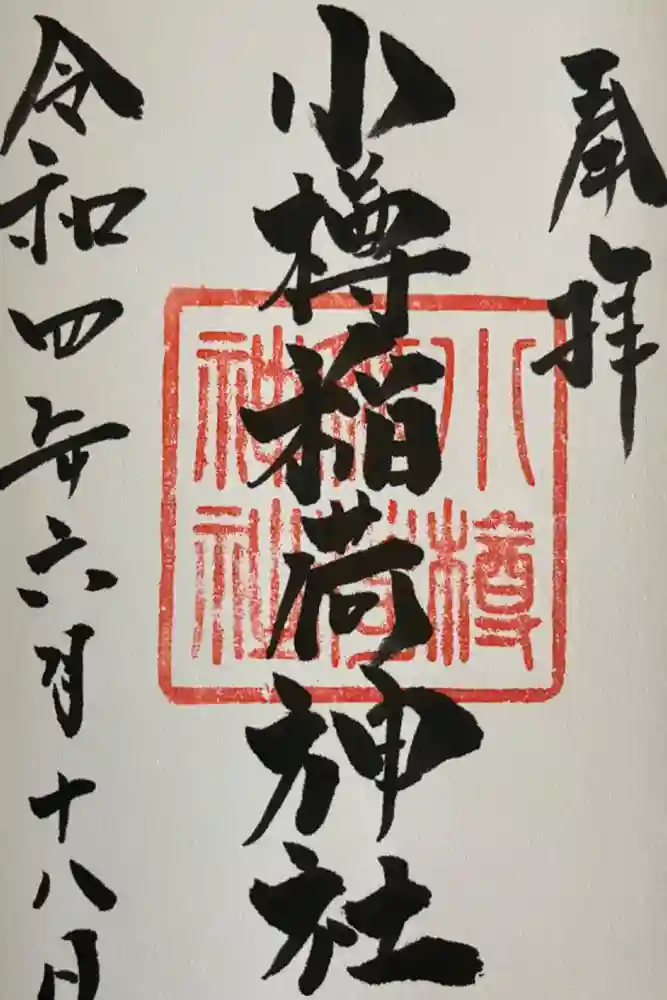 奉拝
小樽稲荷神社
令和四年六月十八日
小樽
稲荷
神社